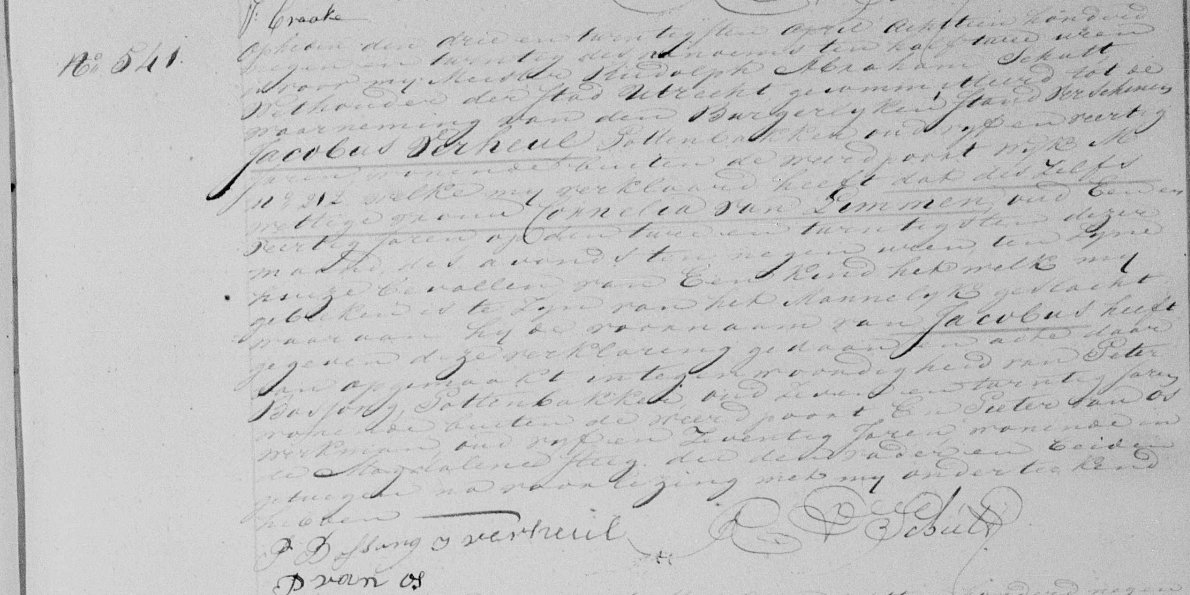 P. Craate
No 541.
Op heden den drie en twintigsten April Achttien honderd
negen en twintig des namiddags ten half twee uren
is voor my Meester Rudolph Abraham Schutt
Wethouder der Stad Utrecht gecommitteerd tot de
waarneming van den Burgerlyken Stand Verschenen
Jacobus Verheul Pottenbakker oud vyf en veertig
Jaren wonende buiten de weerdpoort wyk M
n 212 welke my verklaard heeft dat des Zelfs
wettige vrouw Cornelia van Dimmen, oud Een en
veertig Jaren op den twee en twintigsten dezer
maand des avonds ten negen uren, ten Zyne
huize bevallen van Een Kind het welk my
gebleken is te Zyn van het Mannelyk geslacht
waaraan hy de voornaam van Jacobus heeft
gegeven deze verklaring gedaan en acte daar
van opgemaakt in tegenwoordigheid van Peter
Bossong, Pottenbakker, oud Zeven en twintig Jaren
wonende buiten de weerdpoort En Pieter van Os
werkman oud vyf en Zeventig Jaren wonende in
de Magdalene steeg die den vader en Beiden
getuigen na voorlezing met my ondertekend
hebben
P Bossong J verheul R A Schutt
P van os
honderd negen